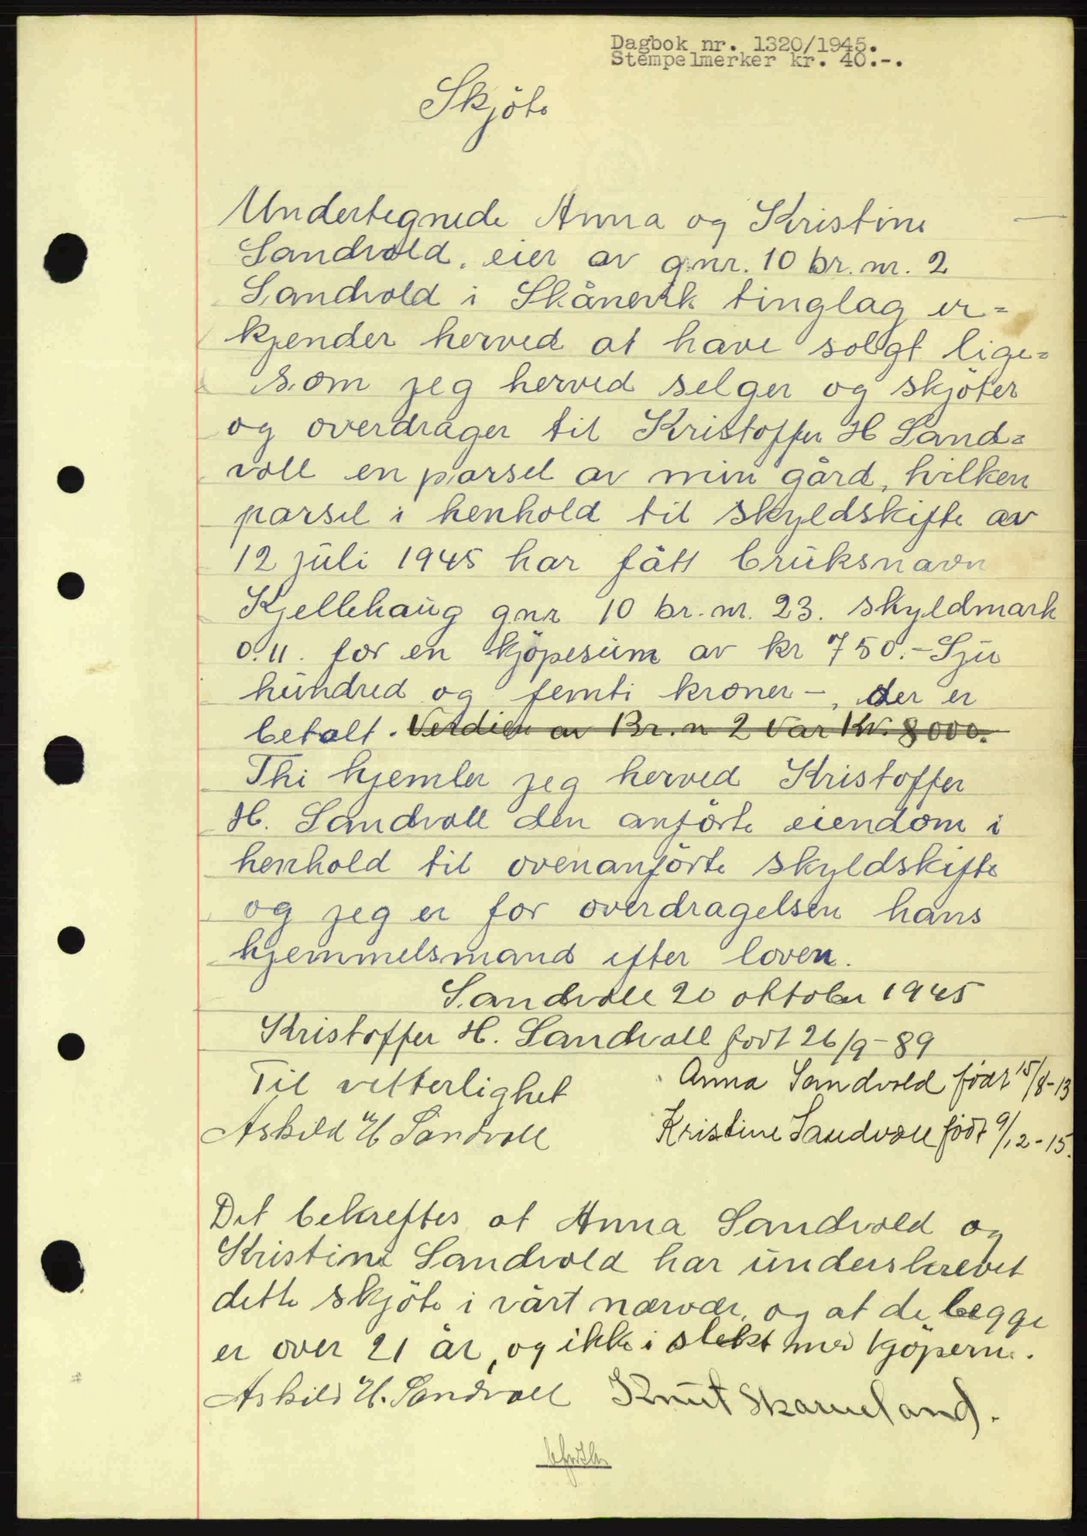 Dagbok nr. 1320/1945.
Stempelmerker kr. 40.-.
Skjöte
Undertegnede Anna og Kristine
Sandvold, eier av gnr. 10 br. nr. 2
Sandvold i Skånevik tinglag er=
kjender herved at have solgt lige=
som jeg herved selger og skjöter
og overdrager til Kristoffer H Sand=
voll en parsel av min gård, hvilken
parsel i henhold til skyldskifte av
12 juli 1945 har fått bruksnavn
Kjellehaug gnr 10 br. nr. 23. skyldmark
0.11. for en kjöpesum av kr 750.- Sju
hundred og femti kroner -, der er
betalt. Verdien av Br. n 2 var Kr. 8000.
Thi hjemler jeg herved Kristoffer
H. Sandvoll den anförte eiendom i
henhold til ovenanförte skyldskifte
og jeg er for overdragelsen hans
hjemmelsmand efter loven.
Sandvoll 20 oktober 1945
Kristoffer H. Sandvoll född 26/9-89
Til vitterlighet
Anna Sandvold född 15/8-13
Askild H Sandvoll
Kristine Sandvoll född 9/12-15.
Det bekreftes at Anna Sandvold og
Kristine Sandvold har underskrevet
dette skjöte i vårt nærvær, og at de begge
er over 21 år, og ikke i slekt med kjöperne.
Askild H. Sandvoll Knut Skarveland.